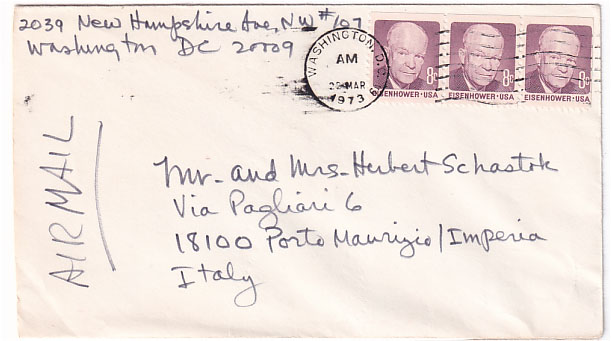 2039 New Hampshire Ave, NW #107
Washington DC 20009
WASHINGTON, D.C.
AM
MAR
1973
8c
EISENHOWER·USA
8c
EISENHOWER·USA
8c
EISENHOWER·USA
AIRMAIL
Mr. and Mrs. Herbert Schastok
Via Pagliari 6
18100 Porto Maurizio/Imperia
Italy